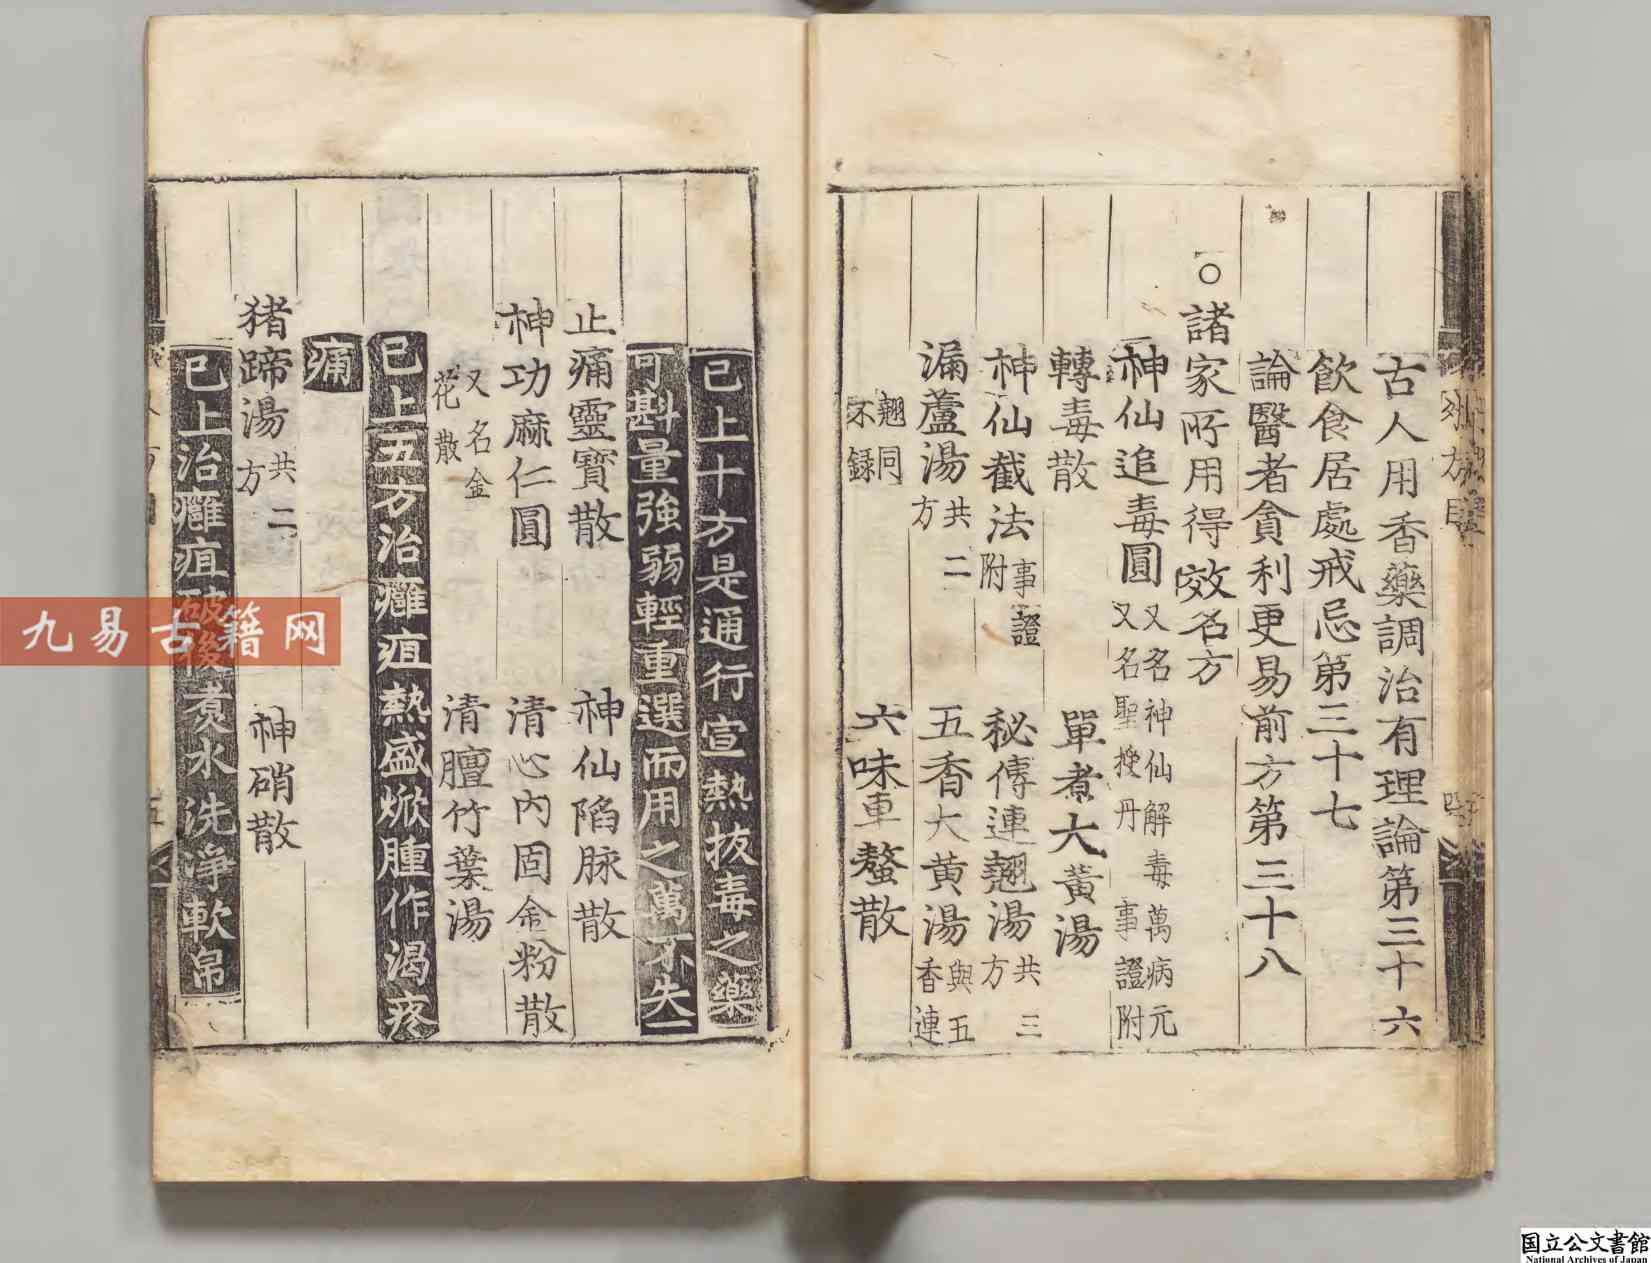 古人用香藥調治有理論第三十六
飲食居處戒忌第三十七
論醫者貪利更易前方第三十八
○諸家所用得效名方
神仙追毒圓 又名神仙解毒萬病元 又名聖授丹 事證附
轉毒散 單煮大黃湯
神仙截法 事證附 秘傳連翹湯 共三方
漏蘆湯 共二方 五香大黃湯 與五香連
翹同不錄 六味車螯散
已上十方是通行宣熱拔毒之藥
可斟量強弱輕重選而用之萬不失一
止痛靈寶散 神仙陷脉散
神功麻仁圓 清心內固金粉散
又名金花散 清膻竹葉湯
已上五方治癰疽熱盛焮腫作渴疼
痛
猪蹄湯 共二方 神硝散
已上治癰疽破後煮水洗淨軟帛
九易古籍网
国立公文書館
National Archives of Japan